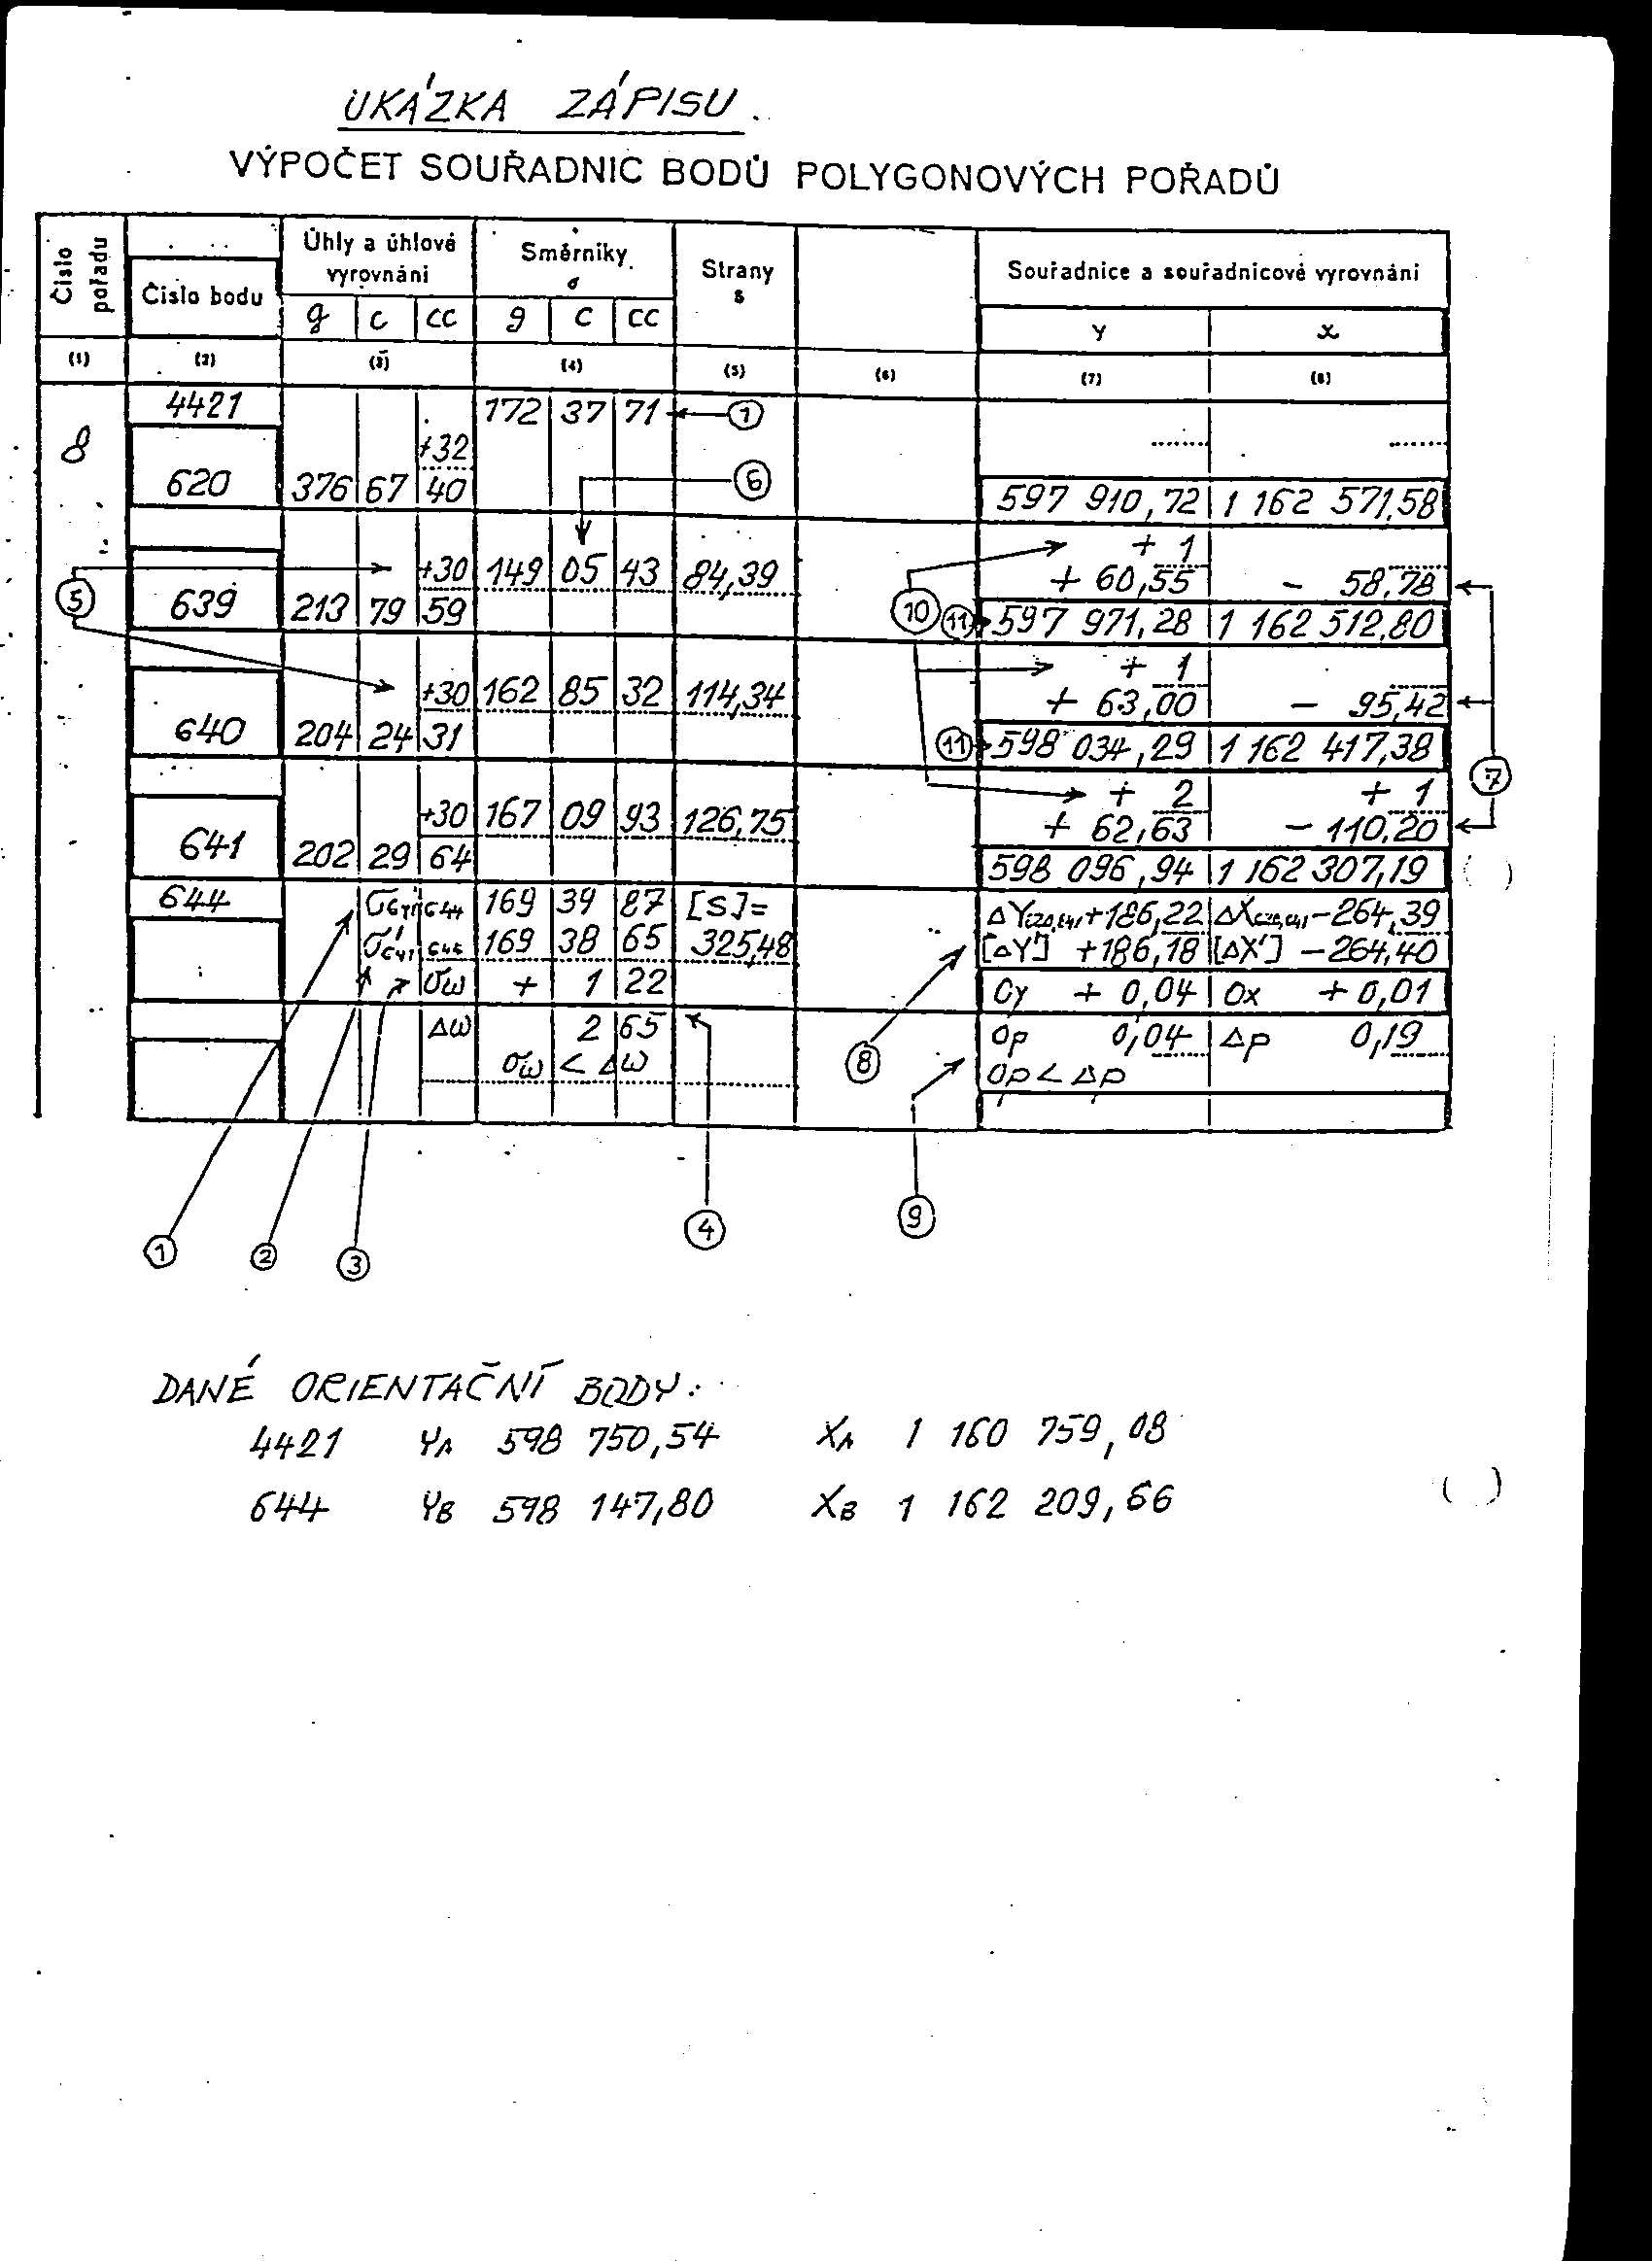 UKÁZKA ZÁPISU.
VÝPOČET SOUŘADNIC BODŮ POLYGONOVÝCH POŘADŮ
Číslo pořadu
Číslo bodu
Úhly a úhlové vyrovnání
Směrníky σ
Strany s
Souřadnice a souřadnicové vyrovnání
g c cc g c cc y x
(1) (2) (3) (4) (5) (6) (7) (8)
4421 172 37 71 ①
8 +32 ⑥
620 376 67 40 597 910,72 1 162 571,58
+ 1
⑤ +30 149 05 43 84,39 + 60,55 - 58,78
639 213 79 59 ⑩ ⑪ 597 971,28 1 162 512,80
+ 1
+30 162 85 32 114,34 + 63,00 - 95,42
640 204 24 31 ⑪ 598 034,29 1 162 417,38 ⑦
+ 2 + 1
+30 167 09 93 126,75 + 62,63 - 110,20
641 202 29 64 598 096,94 1 162 307,19
644 σ641 644 169 39 87 [S]= ΔY620,641 +186,22 ΔX620,641 -264,39
σ'641 644 169 38 65 325,48 [ΔY'] +186,18 [ΔX'] -264,40
σω + 1 22 Oy + 0,04 Ox + 0,01
Δω 2 65 Op 0,04 Δp 0,19
σω < Δω ⑧ Op < Δp
① ② ③ ④ ⑨
DANÉ ORIENTAČNÍ BODY:
4421 YA 598 750,54 XA 1 160 759,08
644 YB 598 147,80 XB 1 162 209,66